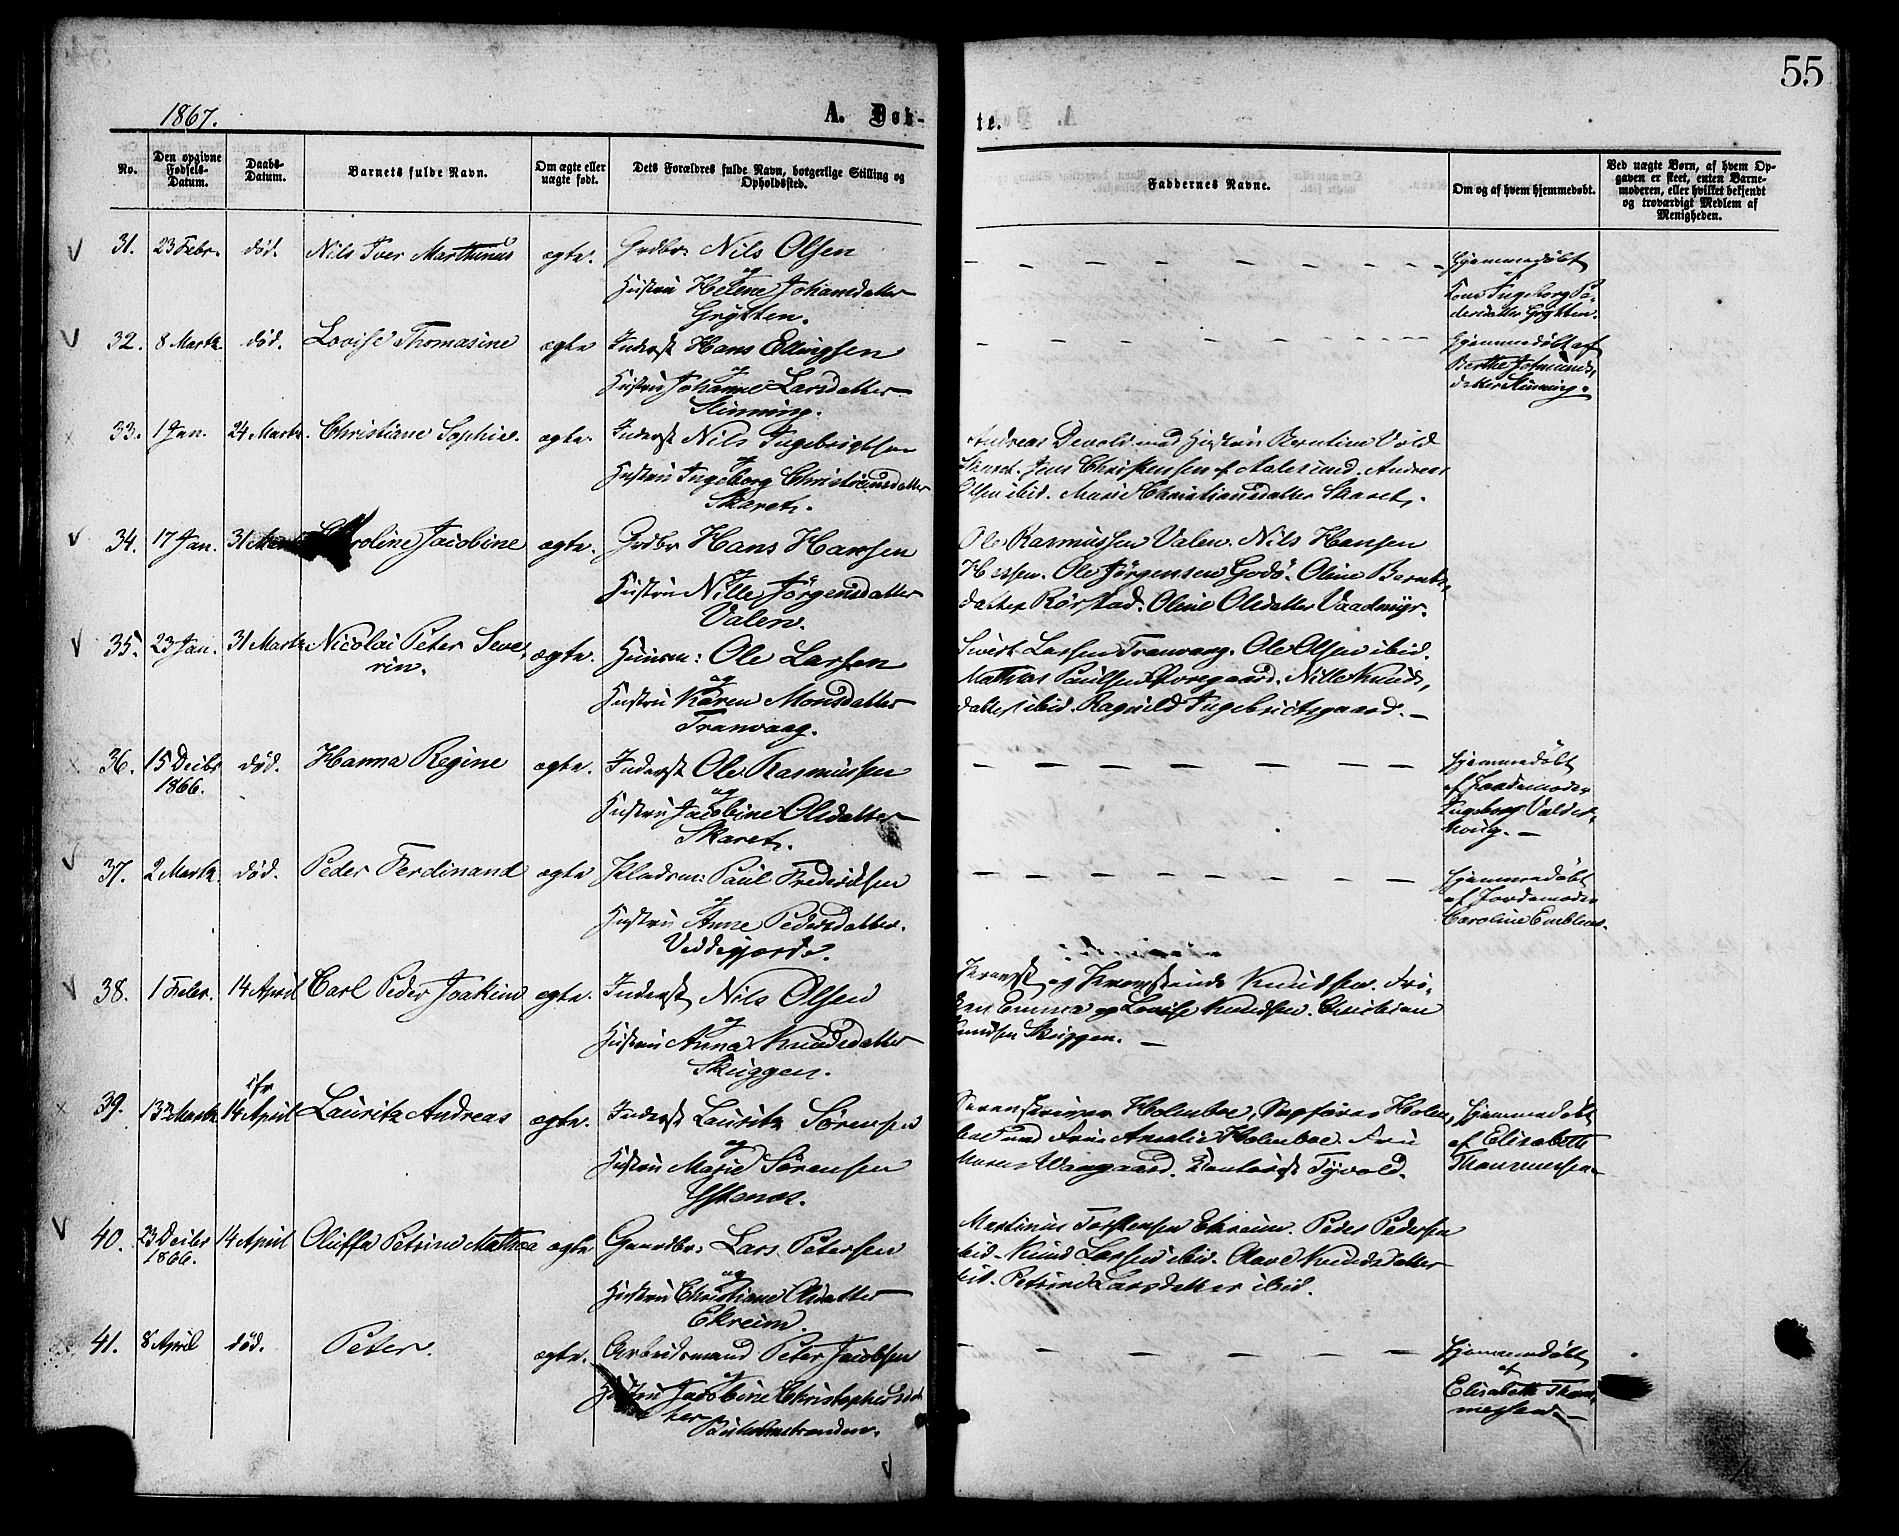 55
1867.
A. Døb-
te.
No.
Den opgivne Fødsels-Datum.
Daabs-Datum.
Barnets fulde Navn.
Om ægte eller uægte født.
Dets Forældres fulde Navn, borgerlige Stilling og Opholdssted.
Faddernes Navne.
Om og af hvem hjemmedøbt.
Ved uægte Børn, af hvem Opgaven er skeet, enten Barnemoderen, eller hvilket bekjendt og troværdigt Medlem af Menigheden.
31. 23 Febr. død. Nils Iver Marthinus ægte. Grdbr: Nils Olsen
og
Hustru Helene Johansdatter
Grytten.
Hjemmedøbt
af
Ingeborg Pe-
dersdatter Grytten.
32. 8 Marts død. Lovise Thomasine ægte Inderst Hans Ellingsen
og
Hustru Johanne Larsdatter
Slinning.
Hjemmedøbt af
Berthe
datter Slinning.
33. 1 Jan. 24 Marts. Christiane Sophie. ægte. Inderst Nils Ingebrigtsen
og
Hustru Ingeborg Christiansdatter
Skaret.
Andreas Devold med Hustru Berntine Vold
Skaret. Jens Christensen af Aalesund. Andreas
Olsen ibid. Marie Christiansdatter Skaret.
34. 17 Jan. 31 Marts Caroline Jacobine ægte. Grdbr Hans Hansen
og
Hustru Nille Jørgensdatter
Valen.
Ole Rasmussen Valen. Nils Hansen
Hessen. Ole Jørgensen Godø. Oline Bernts-
datter Rørstad. Oline Olsdatter Vaadmyr.
35. 23 Jan. 31 Marts Nicolai Peter Seve-
rin. ægte. Huusm: Ole Larsen
og
Hustru Karen Monsdatter
Tranvaag.
Sivert Larsen Tranvaag. Ole Olsen ibid.
Mathias Paulsen Øvregaard. Nille Knuds-
datter ibid. Ragnild Ingebrigtsgaard.
36. 15 Decbr 1866. død. Hanna Regine ægte. Inderst Ole Rasmussen
og
Hustru Jacobine Olsdatter
Skaret.
Hjemmedøbt
af Jordemoder
Ingeborg Valder-
houg.
37. 2 Marts. død. Peder Ferdinand ægte Pladsm: Paul Fredriksen
og
Hustru Anne Pedersdatter.
Veddegjerde.
Hjemmedøbt
af Jordemoder
Caroline Emblem.
38. 1 Febr. 14 April Carl Peder Joakim ægte. Inderst Nils Olsen
og
Hustru Anna Knudsdatter
Skuggen.
Provst og Provstinde Knudsen. Frø-
ken Emma og Lovise Knudsen. Christian
Knudsen Skuggen.
39. 13 Marts ifr 14 April Lauritz Andreas ægte. Inderst Lauritz Sørensen
og
Hustru Marie Sørensen
Ystenæs.
Sorenskriver Holmboe, Holm-
boe Fru Amalie Holmboe. Fru
Wangaard. Tyvold.
Hjemmedøbt
af Elisabeth
Thommessen
40. 23 Decbr 1866. 14 April Oluffa Petrine Mathea ægte Gaardbr: Lars Petersen
og
Hustru Christiane Olsdatter
Ekreim.
Martinus Torstensen Ekreim. Peder Pedersen
ibid. Knud Larsen ibid. Knudsdatter
ibid. Petrine Larsdatter ibid.
41. 8 April død. Peter. ægte. Arbeidsmand Peter Jacobsen
og
Hustru Jacobine Christophersdat-
ter
Hjemmedøbt
af
Elisabeth Thom-
messen